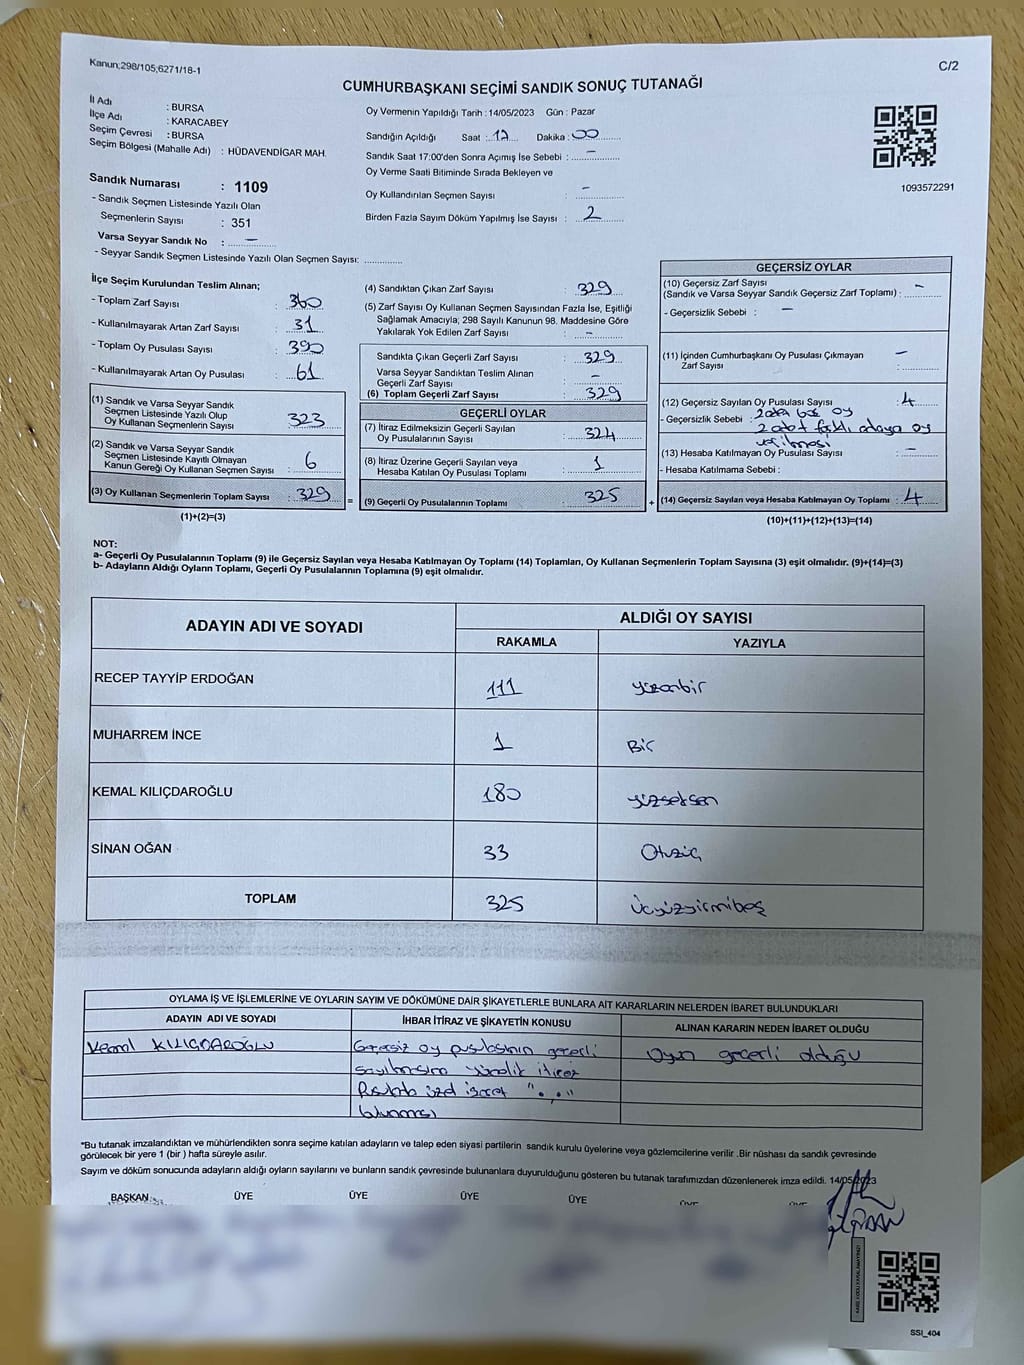 Kanun;298/105;6271/18-1
C/2
CUMHURBAŞKANI SEÇİMİ SANDIK SONUÇ TUTANAĞI
İl Adı : BURSA
İlçe Adı : KARACABEY
Seçim Çevresi : BURSA
Seçim Bölgesi (Mahalle Adı) : HÜDAVENDİGAR MAH.
Sandık Numarası : 1109
- Sandık Seçmen Listesinde Yazılı Olan
Seçmenlerin Sayısı : 351
Varsa Seyyar Sandık No : –
- Seyyar Sandık Seçmen Listesinde Yazılı Olan Seçmen Sayısı: ............
Oy Vermenin Yapıldığı Tarih : 14/05/2023 Gün : Pazar
Sandığın Açıldığı Saat : 17 Dakika : 00
Sandık Saat 17:00'den Sonra Açımış İse Sebebi : –
Oy Verme Saati Bitiminde Sırada Bekleyen ve
Oy Kullandırılan Seçmen Sayısı : –
Birden Fazla Sayım Döküm Yapılmış İse Sayısı : 2
1093572291
İlçe Seçim Kurulundan Teslim Alınan;
- Toplam Zarf Sayısı : 360
- Kullanılmayarak Artan Zarf Sayısı : 31
- Toplam Oy Pusulası Sayısı : 390
- Kullanılmayarak Artan Oy Pusulası : 61
(1) Sandık ve Varsa Seyyar Sandık
Seçmen Listesinde Yazılı Olup
Oy Kullanan Seçmenlerin Sayısı : 323
(2) Sandık ve Varsa Seyyar Sandık
Seçmen Listesinde Kayıtlı Olmayan
Kanun Gereği Oy Kullanan Seçmen Sayısı : 6
(3) Oy Kullanan Seçmenlerin Toplam Sayısı : 329 =
(1)+(2)=(3)
(4) Sandıktan Çıkan Zarf Sayısı : 329
(5) Zarf Sayısı Oy Kullanan Seçmen Sayısından Fazla İse, Eşitliği
Sağlamak Amacıyla; 298 Sayılı Kanunun 98. Maddesine Göre
Yakılarak Yok Edilen Zarf Sayısı : –
Sandıkta Çıkan Geçerli Zarf Sayısı : 329
Varsa Seyyar Sandıktan Teslim Alınan
Geçerli Zarf Sayısı : –
(6) Toplam Geçerli Zarf Sayısı : 329
GEÇERLİ OYLAR
(7) İtiraz Edilmeksizin Geçerli Sayılan
Oy Pusulalarının Sayısı : 324
(8) İtiraz Üzerine Geçerli Sayılan veya
Hesaba Katılan Oy Pusulası Toplamı : 1
(9) Geçerli Oy Pusulalarının Toplamı : 325 +
GEÇERSİZ OYLAR
(10) Geçersiz Zarf Sayısı
(Sandık ve Varsa Seyyar Sandık Geçersiz Zarf Toplamı) : –
- Geçersizlik Sebebi : –
(11) İçinden Cumhurbaşkanı Oy Pusulası Çıkmayan
Zarf Sayısı : –
(12) Geçersiz Sayılan Oy Pusulası Sayısı : 4
- Geçersizlik Sebebi : 2 adet boş oy
2 adet farklı adaya oy
verilmesi
(13) Hesaba Katılmayan Oy Pusulası Sayısı : –
- Hesaba Katılmama Sebebi :
(14) Geçersiz Sayılan veya Hesaba Katılmayan Oy Toplamı : 4
(10)+(11)+(12)+(13)=(14)
NOT:
a- Geçerli Oy Pusulalarının Toplamı (9) ile Geçersiz Sayılan veya Hesaba Katılmayan Oy Toplamı (14) Toplamları, Oy Kullanan Seçmenlerin Toplam Sayısına (3) eşit olmalıdır. (9)+(14)=(3)
b- Adayların Aldığı Oyların Toplamı, Geçerli Oy Pusulalarının Toplamına (9) eşit olmalıdır.
ADAYIN ADI VE SOYADI ALDIĞI OY SAYISI
RAKAMLA YAZIYLA
RECEP TAYYİP ERDOĞAN 111 yüzonbir
MUHARREM İNCE 1 Bir
KEMAL KILIÇDAROĞLU 180 yüzseksen
SİNAN OĞAN 33 Otuzüç
TOPLAM 325 Üçyüzyirmibeş
OYLAMA İŞ VE İŞLEMLERİNE VE OYLARIN SAYIM VE DÖKÜMÜNE DAİR ŞİKAYETLERLE BUNLARA AİT KARARLARIN NELERDEN İBARET BULUNDUKLARI
ADAYIN ADI VE SOYADI İHBAR İTİRAZ VE ŞİKAYETİN KONUSU ALINAN KARARIN NEDEN İBARET OLDUĞU
Kemal KILIÇDAROĞLU Geçersiz oy pusulasının geçerli Oyun geçerli olduğu
sayılmasına yönelik itiraz
Pusulada özel işaret ". , ."
bulunması
*Bu tutanak imzalandıktan ve mühürlendikten sonra seçime katılan adayların ve talep eden siyasi partilerin sandık kurulu üyelerine veya gözlemcilerine verilir .Bir nüshası da sandık çevresinde
görülecek bir yere 1 (bir ) hafta süreyle asılır.
Sayım ve döküm sonucunda adayların aldığı oyların sayılarını ve bunların sandık çevresinde bulunanlara duyurulduğunu gösteren bu tutanak tarafımızdan düzenlenerek imza edildi. 14/05/2023
BAŞKAN ÜYE ÜYE ÜYE ÜYE
SSI_404